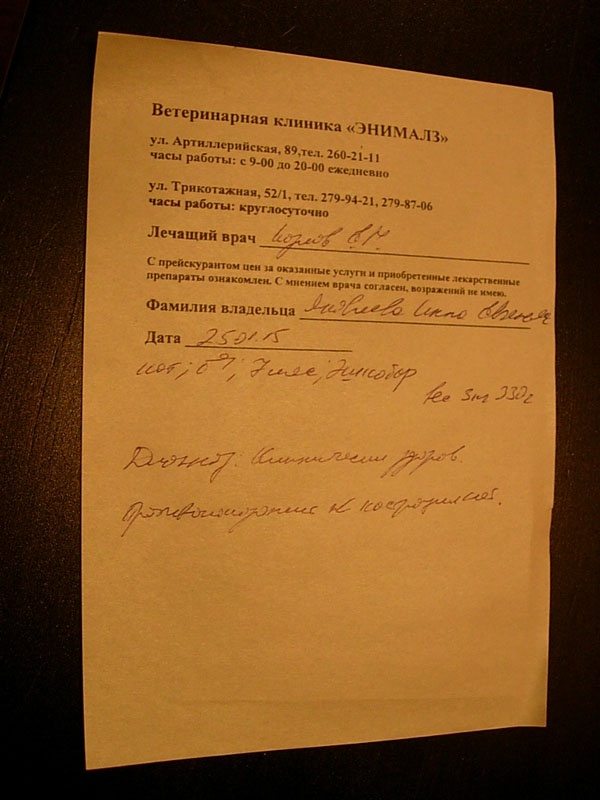 Ветеринарная клиника «ЭНИМАЛЗ»
ул. Артиллерийская, 89,тел. 260-21-11
часы работы: с 9-00 до 20-00 ежедневно
ул. Трикотажная, 52/1, тел. 279-94-21, 279-87-06
часы работы: круглосуточно
Лечащий врач
С прейскурантом цен за оказанные услуги и приобретенные лекарственные
препараты ознакомлен. С мнением врача согласен, возражений не имею.
Фамилия владельца Яковлева Инна
Дата 25.01.15
кот; 7 мес;
вес 3кг 330г
Диагноз: Клинически здоров